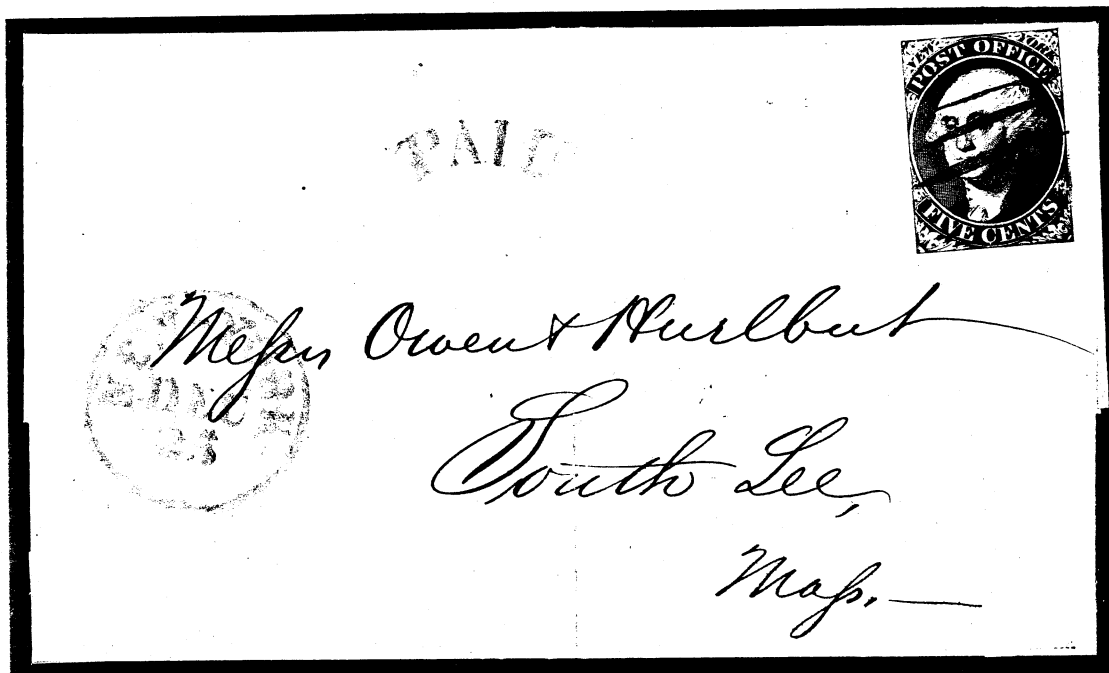 NEW YORK
POST OFFICE
FIVE CENTS
PAID
Messrs Owen & Hurlbut
South Lee,
Mass.